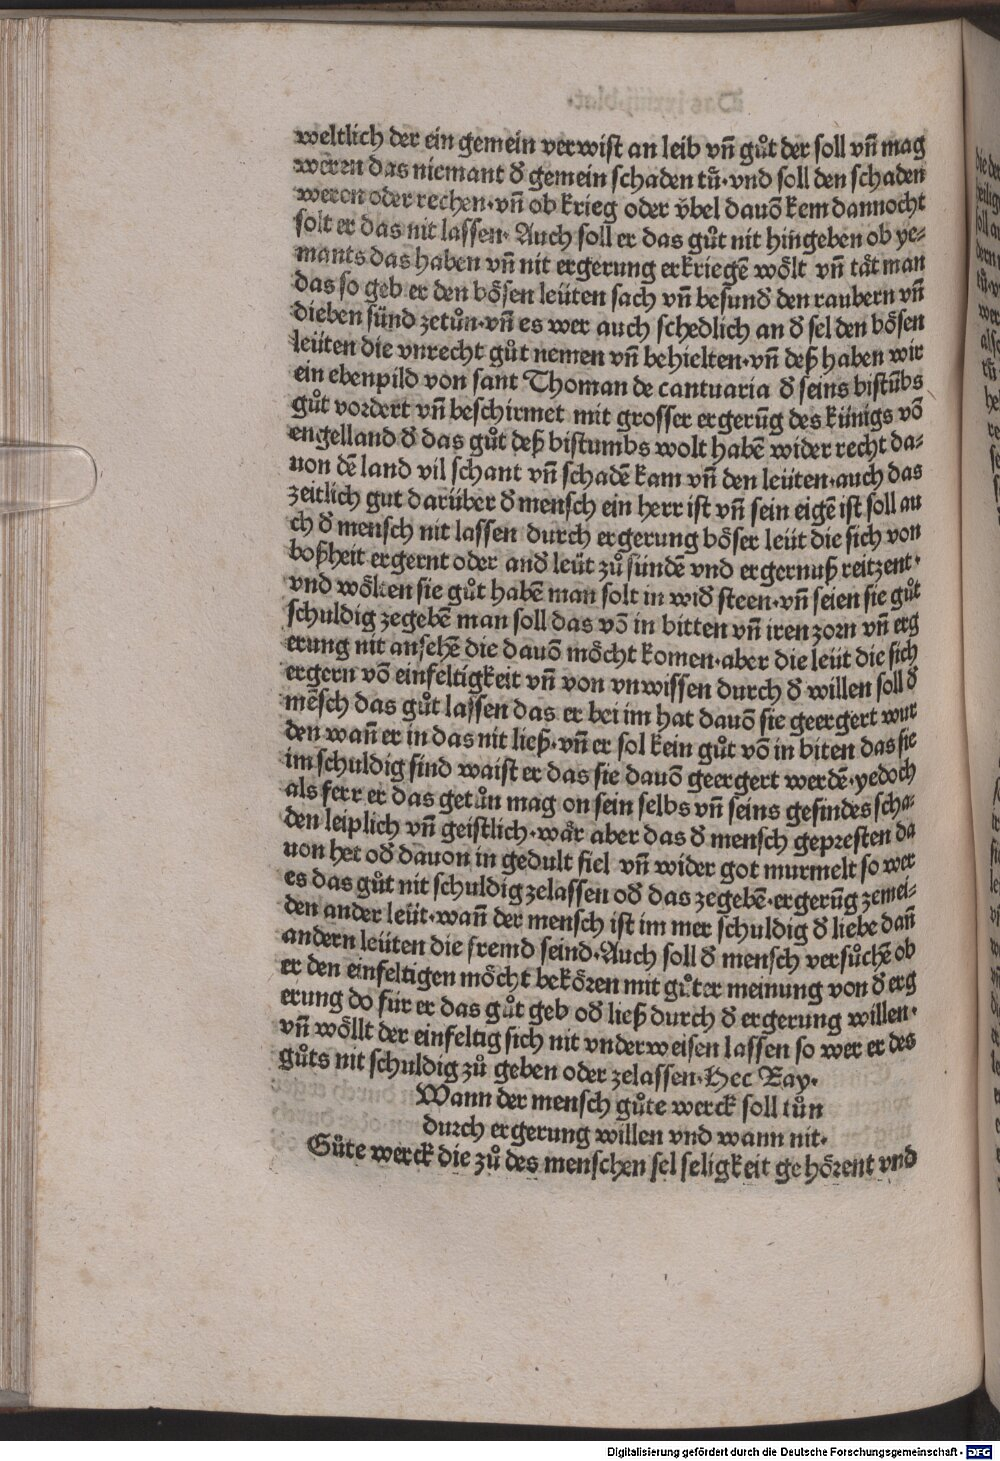 weltlich der ein gemein verwist an leib vn̄ gůt der soll vn̄ mag
weren das niemant đ gemein schaden tů·vnd soll den schaden
weren oder rechen·vn̄ ob krieg oder v̊bel dauō kem dannocht
solt er das nit lassen· Auch soll er das gůt nit hingeben ob ye⸗
mants das haben vn̄ nit ergerung erkriegē wo̊lt vn̄ ta̋t man
das so geb er den bo̊sen leüten sach vn̄ besunđ den raubern vn̄
dieben sünd zetůn·vn̄ es wer auch schedlich an đ sel den bo̊sen
leüten die vnrecht gůt nemen vn̄ behielten·vn̄ deß haben wir
ein ebenpild von sant Thoman de cantuaria đ seins bistūbs
gůt vordert vn̄ beschirmet mit grosser ergerūg des künigs vō
engelland đ das gůt deß bistumbs wolt habē wider recht da⸗
uon dē land vil schant vn̄ schadē kam vn̄ den leüten·auch das
zeitlich gut darüber đ mensch ein herr ist vn̄ sein eigē ist soll au
ch đ mensch nit lassen durch ergerung bo̊ser leüt die sich von
boßheit ergernt oder anđ leüt zů sündē vnd ergernuß reitzent·
vnd wo̊lten sie gůt habē man solt in wiđ steen·vn̄ seien sie gůt
schuldig zegebē man soll das vō in bitten vn̄ iren zorn vn̄ erg
erung nit ansehē die dauō mo̊cht komen·aber die leüt die sich
ergern vō einfeltigkeit vn̄ von vnwissen durch đ willen soll đ
mēsch das gůt lassen das er bei im hat dauō sie geergert wur
den wan̄ er in das nit ließ·vn̄ er sol kein gůt vō in biten das sie
im schuldig sind waist er das sie dauō geergert werdē·yedoch
als ferr er das getůn mag on sein selbs vn̄ seins gesindes scha⸗
den leiplich vn̄ geistlich·wa̋r aber das đ mensch gepresten da
uon het ođ dauon in gedult fiel vn̄ wider got murmelt so wer
es das gůt nit schuldig zelassen ođ das zegebē·ergerūg zemei⸗
den ander leüt·wan̄ der mensch ist im mer schuldig đ liebe dan̄
andern leüten die fremd seind·Auch soll đ mensch versůchē ob
er den einfeltigen mo̊cht beko̊ren mit gůter meinung von đ erg
erung do für er das gůt geb ođ ließ durch đ ergerung willen·
vn̄ wo̊llt der einfeltig sich nit vnderweisen lassen so wer er des
gůts nit schuldig zů geben oder zelassen·Hec Ray·
Wann der mensch gůte werck soll tůn
durch ergerung willen vnd wann nit·
Gůte werck die zů des menschen sel seligkeit geho̊rent vnd
Digitalisierung gefördert durch die Deutsche Forschungsgemeinschaft - DFG